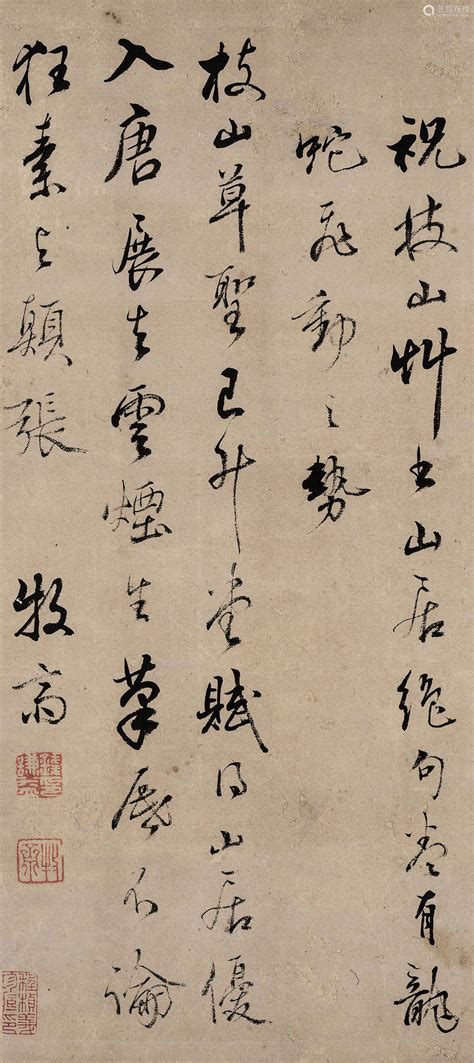 祝枝山艸書山居絶句卷有龍
蛇飛動之勢
枝山草聖已升堂賦得山居優
入唐展去雲煙生筆底不論
狂素與顛張 牧齋
艺狐在线